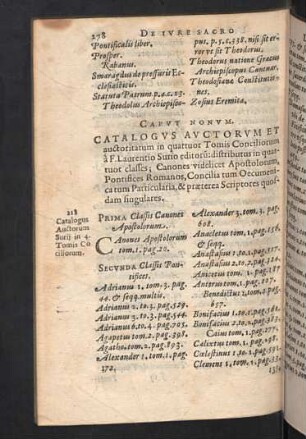 278 DE IVRE SACRO
Pontificalis liber.
Prosper.
Rabanus.
Smaragdus de pressuris Ecclesiasticis.
Statuta Patrum
Theodolus Archiepisco-
pus. p.5.c.538. nisi sit error
vt sit Theodorus.
Theodorus natione Græcus
Archiepiscopus Cantuar.
Theodosianæ Constitutiones.
Zosius Eremita.
CAPVT NONVM.
CATALOGVS AVCTORVM ET
auctoritatum in quattuor Tomis Conciliorum
à F. Laurentio Surio editorū: distributus in quat-
tuor classes; Canones videlicet Apostolorum,
Pontifices Romanos, Concilia tum Oecumeni-
ca tum Particularia, & præterea Scriptores quos-
dam singulares.
218
Catalogus
Auctorum
Surij in 4.
Tomis Cō
ciliorum.
PRIMA Classis Canones
Apostolorum.
CAnones Apostolorum
tom.1.pag.20.
SECVNDA Classis Pon-
tifices.
Adrianus 1. tom.3. pag.
44. & seqq. multis.
Adrianus 2. to.3. pag.529.
Adrianus 3. to.3. pag.544.
Adrianus 6. to.4. pag.703.
Agapetus tom.2. pag.398.
Agatho. tom.2. pag.893.
Alexander 1. tom.1. pag.
372.
Alexander 3. tom.3. pag.
608.
Anacletus tom.1. pag.
& seqq.
Anastasius 1. to.1. pag.
Anastasius 2. to.2. pag.
Anicetus tom.1. pag.
Anterus tom.1. pag.
Benedictus 2. tom.
pag. 617.
Bonifacius 1. to.1. pag.
Bonifacius 2. to.2. pag.
Caius tom.1. pag.277.
Calixtus tom.1. pag.
Cœlestinus 1. to.1. pag.
Clemens 1. tom.1. pag.